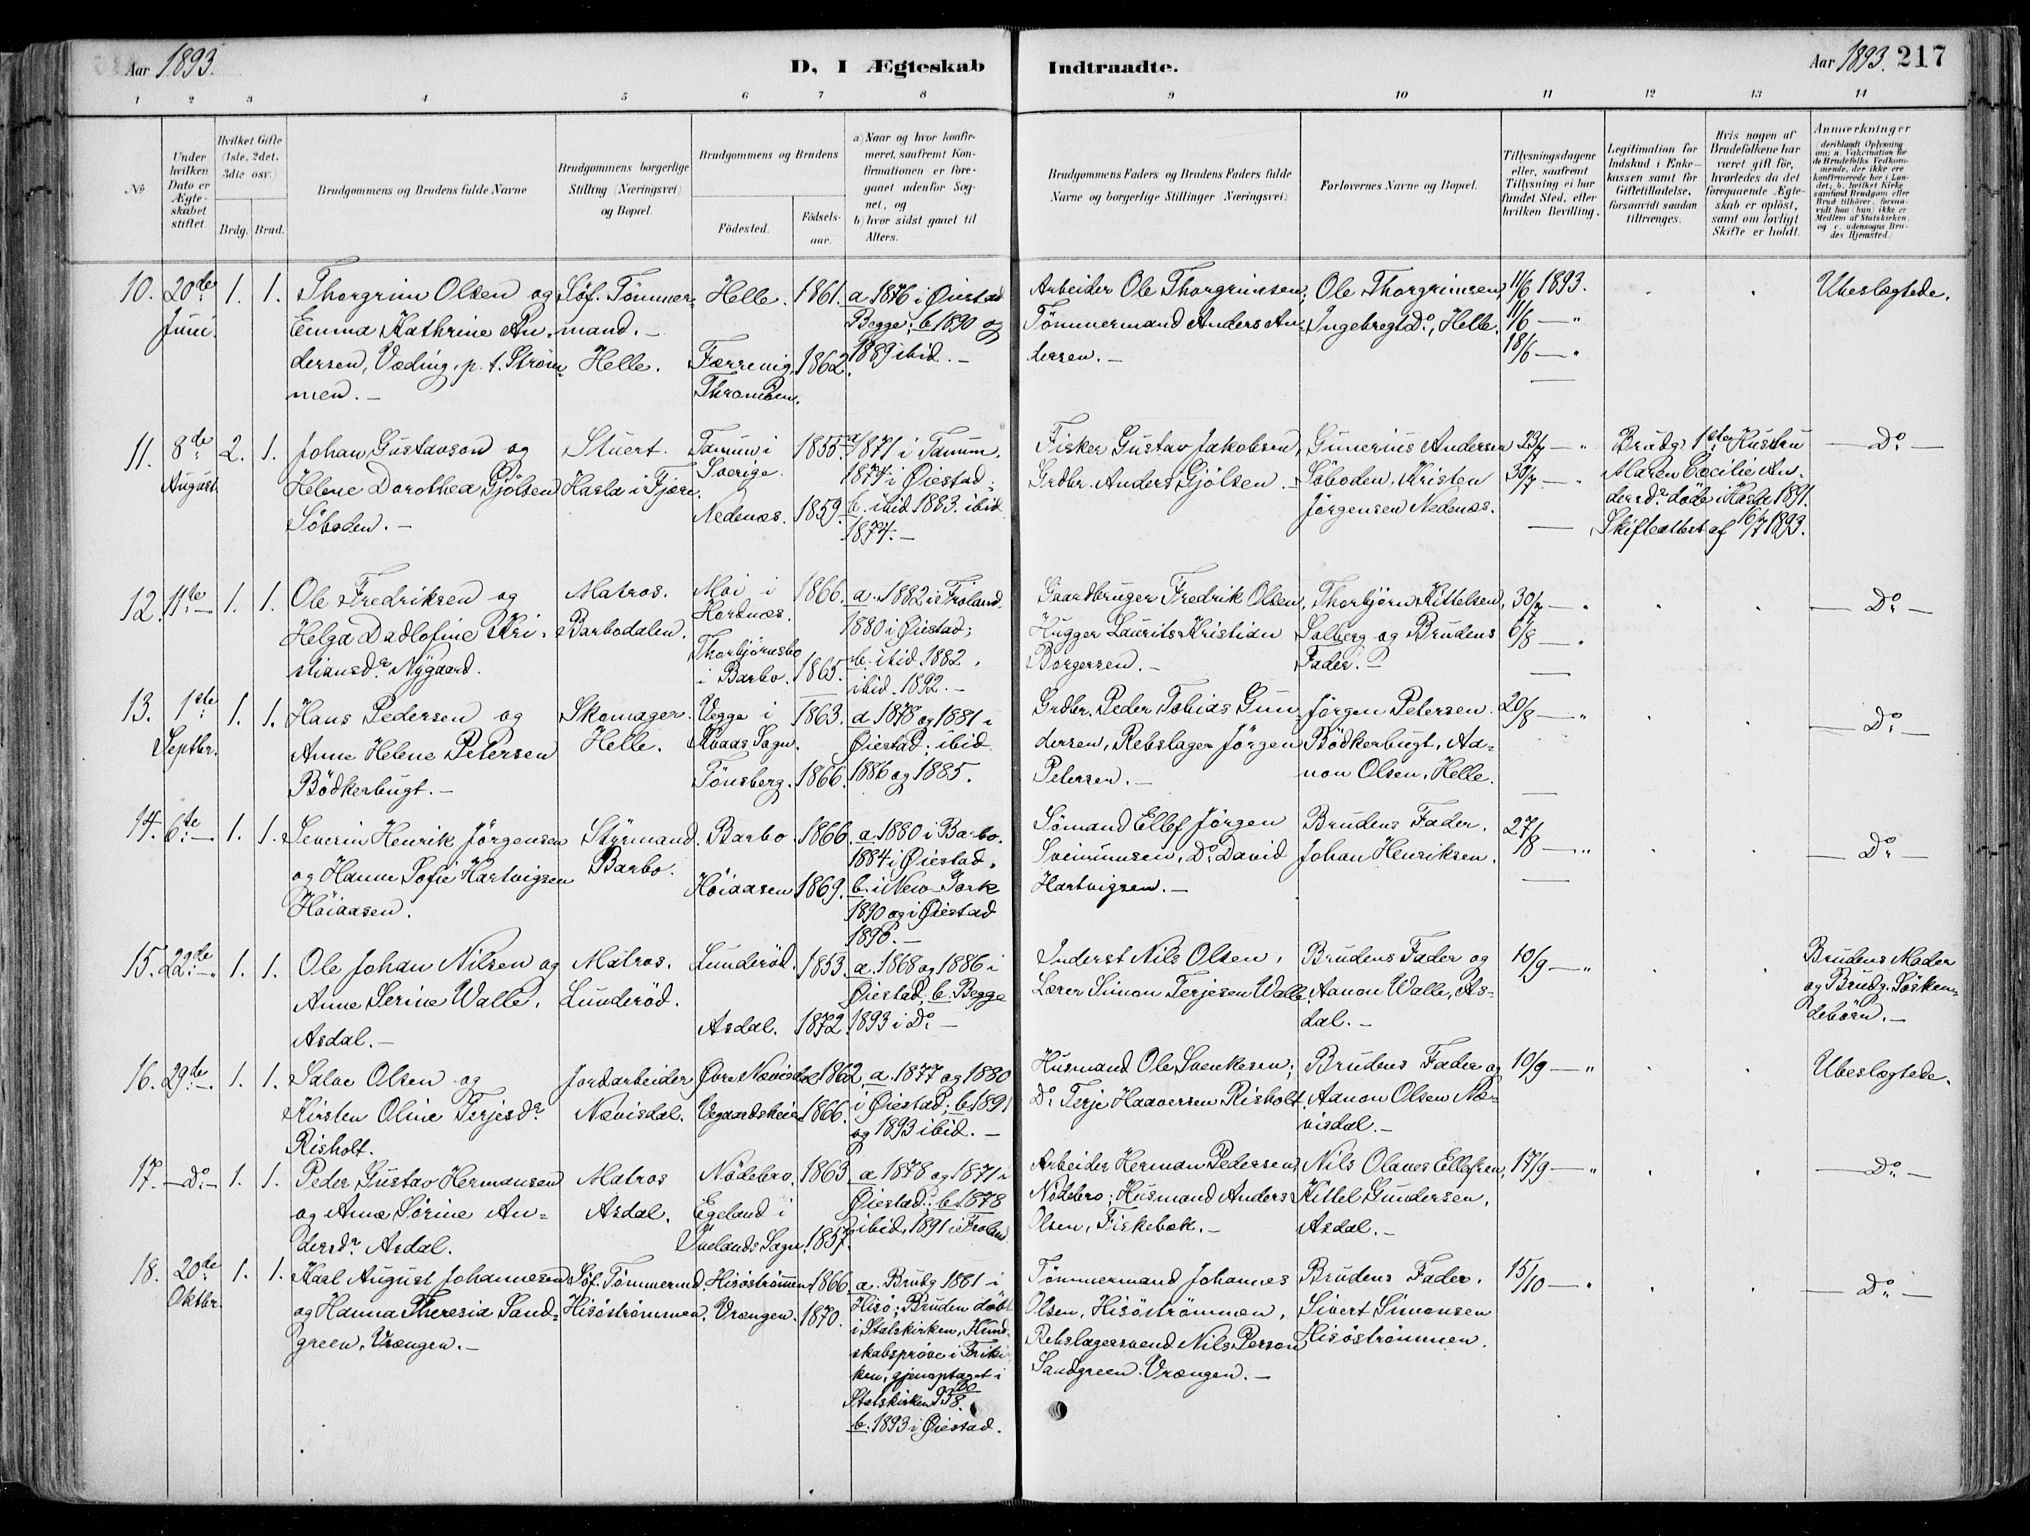 Aar 1893.
D, I Ægteskab Indtraadte.
Aar 1893. 217
1 2 3 4 5 6 7 8 9 10 11 12 13 14
No
Under hvilken Dato er Ægteskabet stiftet.
Hvilket Gifte (1ste, 2det, 3die osv.)
Brdg. Brud.
Brudgommens og Brudens fulde Navne
Brudgommens borgerlige Stilling (Næringsvei) og Bopæl.
Brudgommens og Brudens
Födested. Födselsaar.
a) Naar og hvor konfirmeret, saafremt Konfirmationen er foregaaet udenfor Sognet, og
b) hvor sidst gaaet til Alters.
Brudgommens Faders og Brudens Faders fulde Navne og borgerlige Stillinger (Næringsvei)
Forlovernes Navne og Bopæl.
Tillysningsdagene eller, saafremt Tillysning ei har fundet Sted, efter hvilken Bevilling.
Legitimation for Indskud i Enkekassen samt for Giftetilladelse, forsaavidt saadan tiltrænges.
Hvis nogen af Brudefolkene har været gift för, hvorledes da det foregaaende Ægteskab er oplöst, samt om lovligt Skifte er holdt.
Anmærkninger (deriblandt Oplysning om: a. Vakcination for de Brudefolks Vedkommende, der ikke ere konfirmerede her i Landet; b. hvilket Kirkesamfund Brudgom eller Brud tilhörer, forsaavidt han (hun) ikke er Medlem af Statskirken og c. udensogns Brudes Hjemsted.)
10. 20de Juni. 1. 1.
Thorgrim Olsen og
Emma Kathrine An-
dersen, Væding, p. t. Ström-
men. -
Söf. Tömmer-
mand. -
Helle.
Helle. 1861.
Færrevig, 1862.
Thromöen.
a 1876 i Öiestad
Begge; b 1890 og
1889 ibid. -
Arbeider Ole Thorgrimsen;
Tömmermand Anders An-
dersen. -
Ole Thorgrimsen,
Ingebregt Do, Helle.
11/6 1893.
11/6 — "
18/6 — "
Ubeslægtede.
11. 8de August 2. 1.
Johan Gustavson og
Helene Dorothea Gjölsen
Söboden. -
Stuert.
Hasla i Fjære.
Tanum i 1855.
Sverige.
Nedenæs. 1859.
a 1871 i Tanum.
1874 i Öiestad;
b. ibid 1883. ibid
1874. -
Fisker Gustav Jakobsen,
Grdbr. Anders Gjölsen. -
Gunerius Andersen
Söboden, Kristen
Jörgensen Nedenæs.
23/7 — "
30/7 — "
Brudg. 1ste Hustru
Maren Cecilie An-
dersdr döde i Hasla 1891.
Skifteattest af 6/7 1893.
— Do —
12. 11te — 1. 1.
Ole Fredriksen og
Helga Dadlofine Kri-
stiansdr Nygaard.
Matros.
Barbodalen.
Moi i 1866.
Hordnæs.
Thorbjörnsbo
i Barbo. 1865.
a. 1882 i Froland.
1880 i Öiestad;
b. ibid 1882.
ibid. 1892. -
Gaardbruger Fredrik Olsen,
Hugger Laurits Kristian
Borgersen. -
Thorbjörn Kittelsen,
Solberg og Brudens
Fader. -
30/7 — "
6/8 — "
— Do —
13. 1ste Septbr. 1. 1.
Hans Pedersen og
Anne Helene Petersen
Bödkerbugt. -
Skomager.
Helle.
Vegge i 1863.
Kvaas Sogn.
Tönsberg. 1866.
a 1878 og 1881 i
Öiestad; ibid
1886 og 1885.
Grdbr. Peder Tobias Gun-
dersen, Rebslager Jörgen
Petersen. -
Jörgen Petersen.
Bödkerbugt, Aa-
non Olsen, Helle.
20/8 — "
— Do —
14. 6te — 1. 1.
Severin Henrik Jörgensen
og Hanna Sofie Hartvigsen
Höiaasen.
Styrmand.
Barbo.
Barbo. 1866.
Höiaasen 1869.
a. 1880 i Barbo.
1884 i Öiestad.
b. i New-York
1890 og i Öiestad
1893. -
Sömand Ellef Jörgen
Sveinunsen, Do David
Hartvigsen. -
Brudens Fader.
Johan Henriksen.
27/8 — "
— Do —
15. 22de — 1. 1.
Ole Johan Nilsen og
Anne Serine Walle.
Asdal. -
Matros.
Lunderöd.
Lunderöd. 1853.
Asdal. 1872.
a. 1868 og 1886 i
Öiestad; b. Begge
1893 i Do -
Inderst Nils Olsen,
Lærer Simon Terjesen Walle
Brudens Fader og
Aanon Walle, As-
dal. -
10/9 — "
Brudens Moder
og Brudg. Sösken-
debörn. -
16. 29de — 1. 1.
Salve Olsen og
Kirsten Oline Terjesdr
Risholt.
Jordarbeider
Nævisdal.
Övre Nævisdal 1862.
Vegaardsheien 1866.
a. 1877 og 1880
i Öiestad; b 1891
og 1893 ibid. -
Husmand Ole Svenkesen;
Do Terje Haavorsen Risholt.
Brudens Fader og
Aanon Olsen Næ-
visdal. -
10/9 — "
Ubeslægtede.
17. — Do — 1. 1.
Peder Gustav Hermansen
og Anne Sörine An-
dersdr Asdal.
Matros
Asdal.
Nödebro. 1863
Egeland i
Ivelands Sogn. 1857.
a 1878 og 1871 i
Öiestad; b 1878
ibid. 1891 i Froland
Arbeider Herman Pedersen,
Nödebro; Husmand Anders
Olsen, Fiskebæk. -
Nils Olaves Ellefsen,
Kittel Gundersen,
Asdal. -
17/9 — "
— Do —
18. 20de Oktbr. 1. 1.
Karl August Johannesen
og Hanna Theresia Sand-
green, Vrængen. -
Söf. Tömmermd.
Hisöströmmen.
Hisöströmmen 1866
Vrængen. 1870.
a. Brudg 1861 i
Hisö; Bruden döbt
i Statskirken, Kund-
skabspröve i Friki-
ken, gjenoptaget i
Statskirken
b. 1893 i Öiestad.
Tömmermand Johannes
Olsen, Hisöströmmen,
Rebslagersvend Nils Person
Sandgreen. Vrængen. -
Brudens Fader.
Sivert Simonsen
Hisöströmmen.
15/10 — "
— Do —